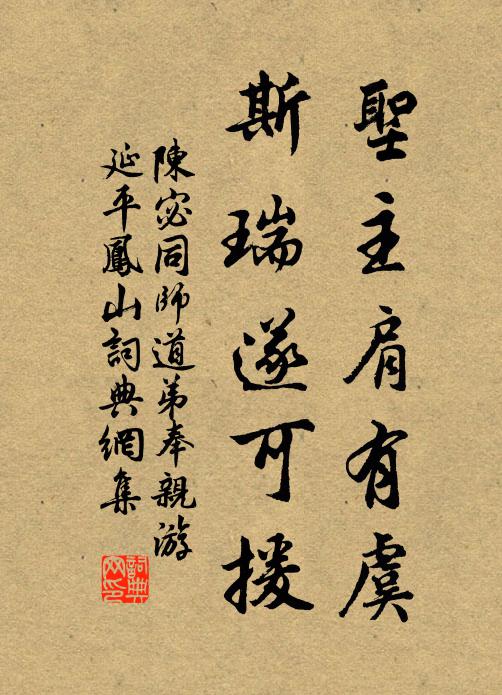 聖主肩有虞
斯瑞遂可援
陳宓同師道弟奉親游
延平鳳山詞典網集
詞典網印